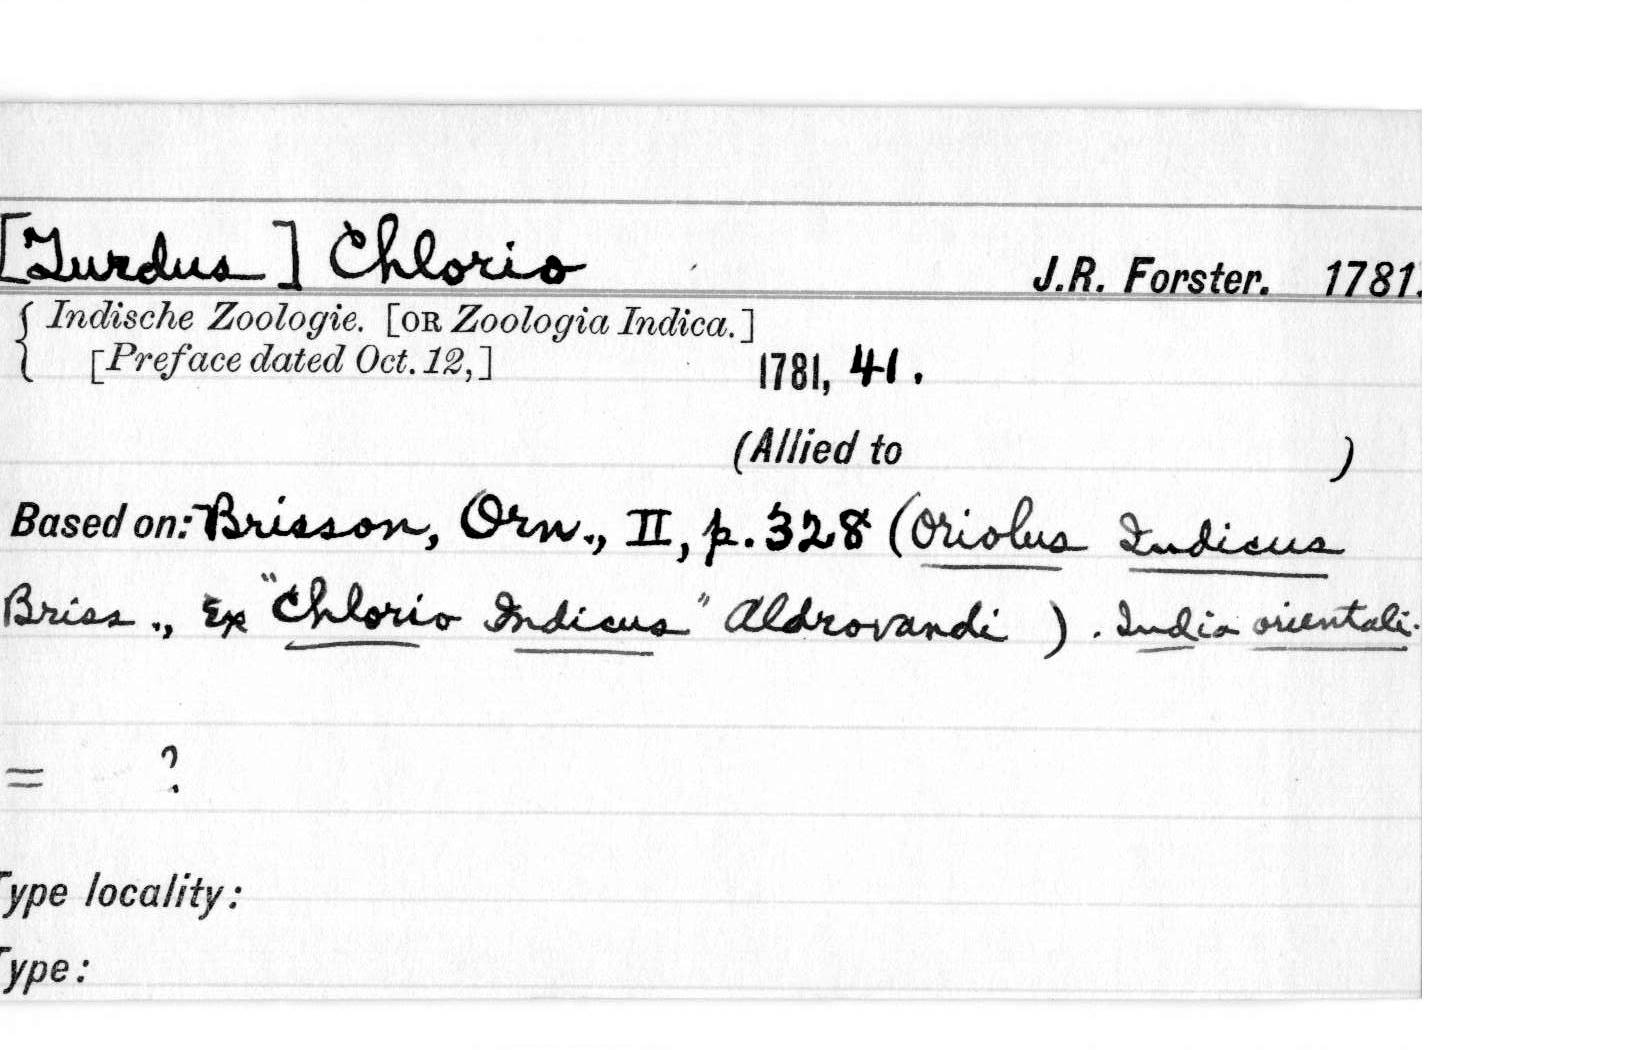 [Turdus] Chlorio J.R. Forster. 1781.
{ Indische Zoologie. [OR Zoologia Indica.]
[Preface dated Oct. 12,] 1781, 41.
(Allied to )
Based on: Brisson, Orn., II, p. 328 (Oriolus Indicus
Briss., Ex "Chlorio Indicus" Aldrovandi). India orientali.
= ?
Type locality:
Type: